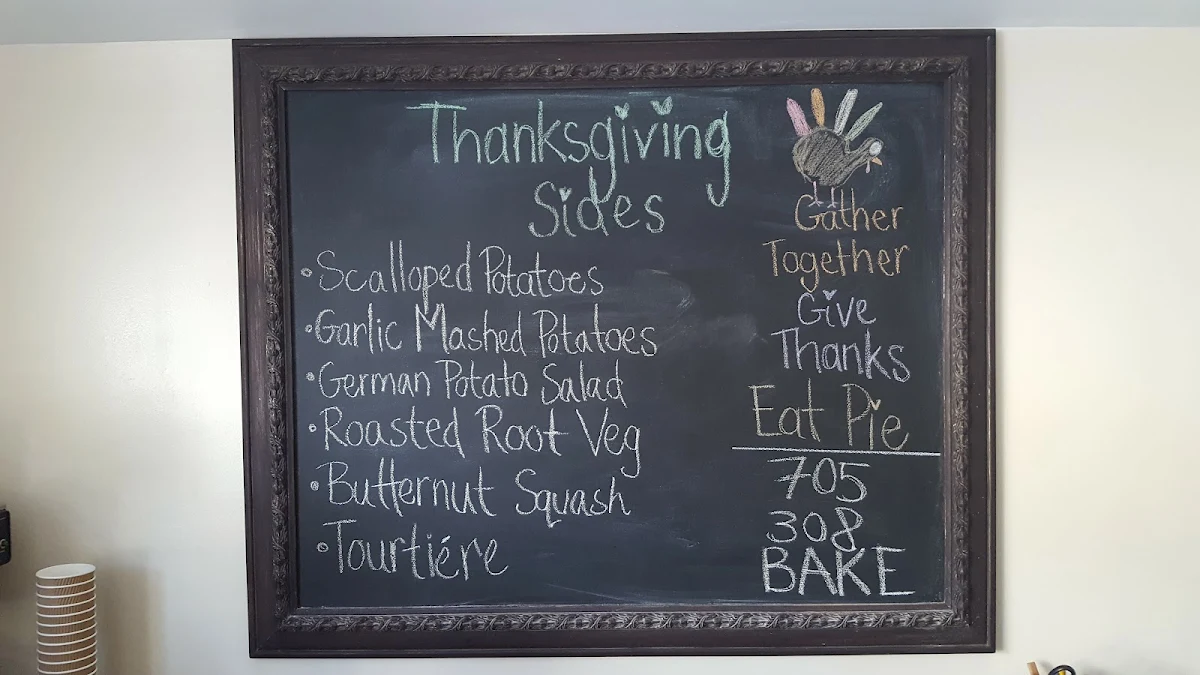 Thanksgiving
Sides
• Scalloped Potatoes
• Garlic Mashed Potatoes
• German Potato Salad
• Roasted Root Veg
• Butternut Squash
• Tourtiére
Gather
Together
Give
Thanks
Eat Pie
705
308
BAKE